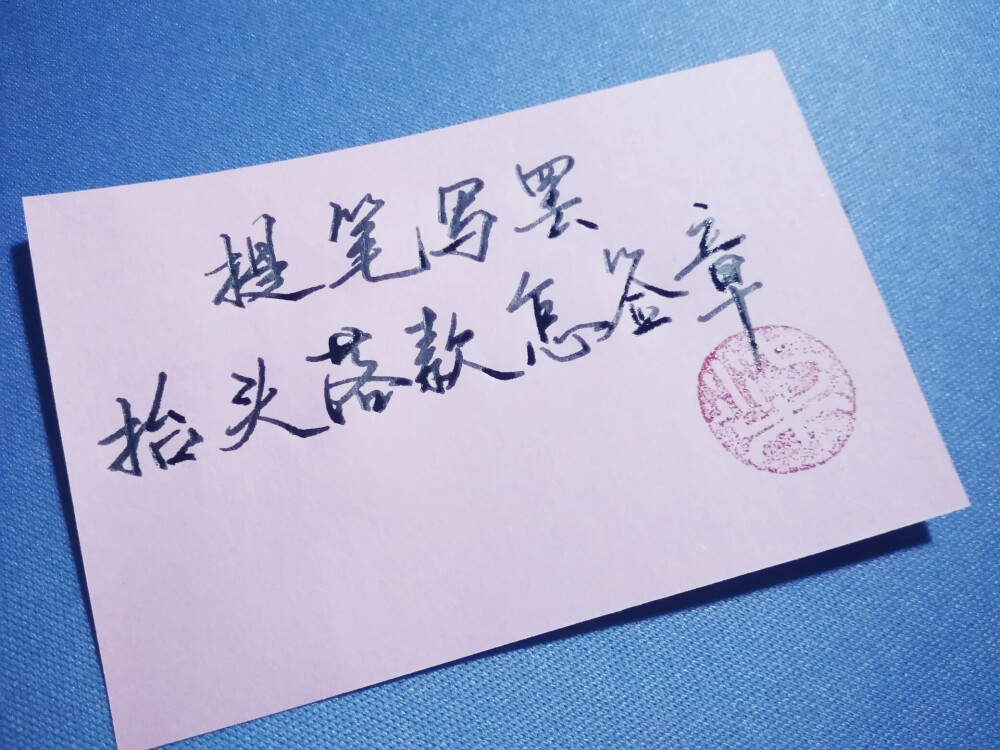 提笔写罢
抬头落款怎签章